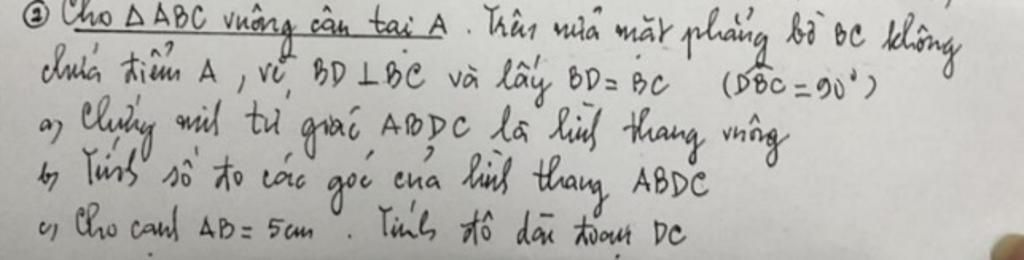 ② Cho △ABC vuông cân tại A. Trên nửa mặt phẳng bờ BC không
chứa điểm A, vẽ BD ⊥ BC và lấy BD = BC (DBC = 90°)
a) Chứng minh tứ giác ABDC là hình thang vuông
b) Tính số đo các góc của hình thang ABDC
c) Cho cạnh AB = 5cm. Tính độ dài đoạn DC